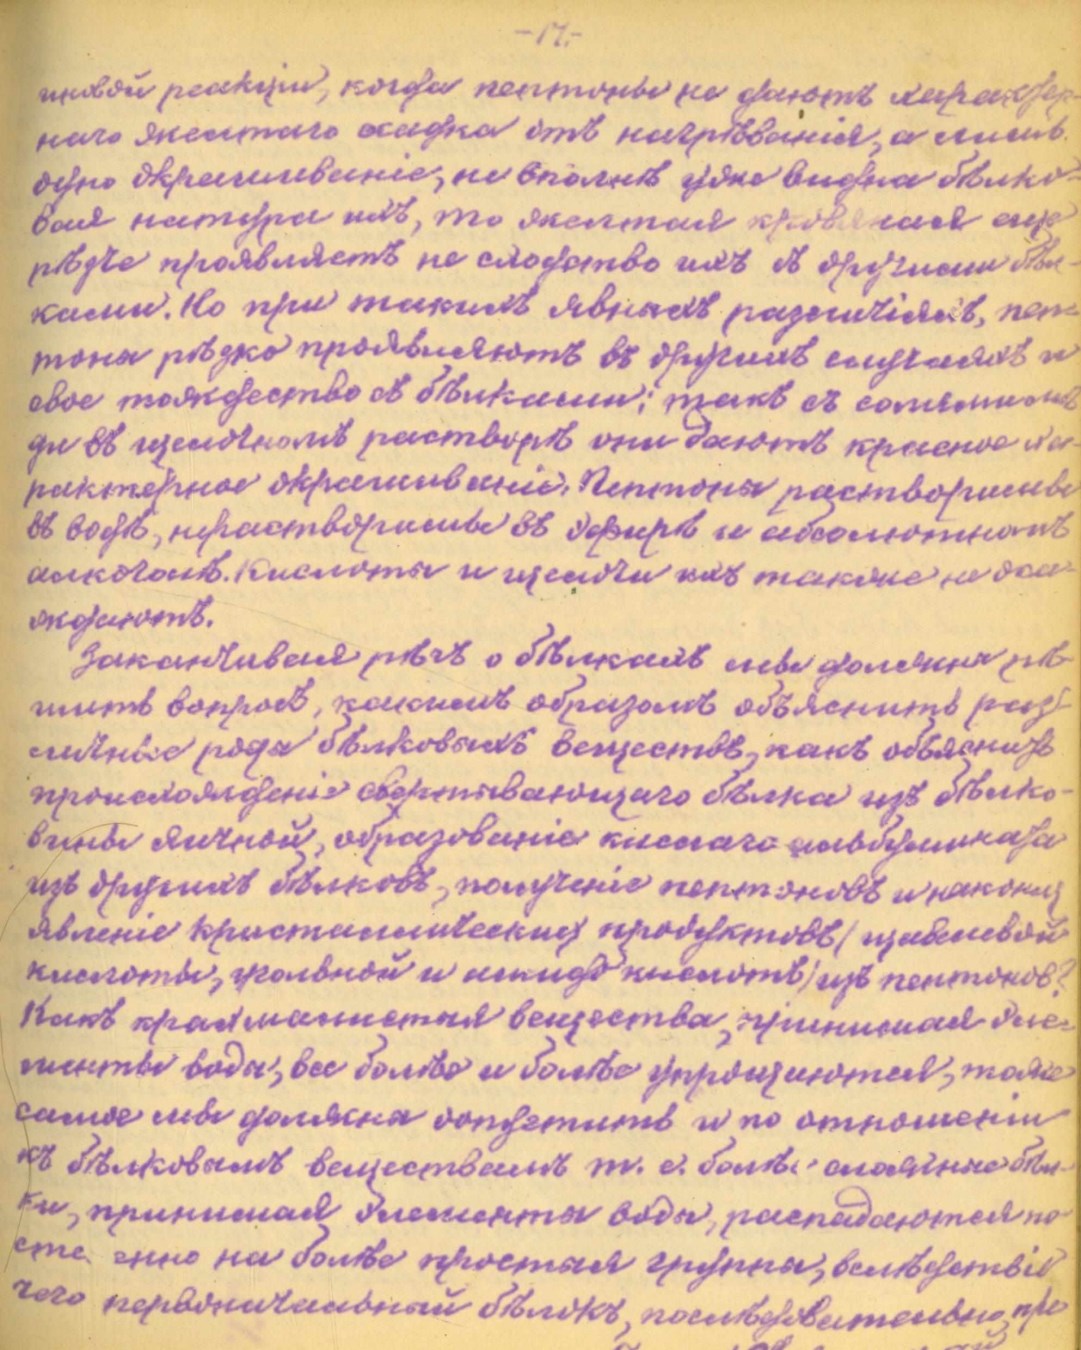 -17.-
иновой реакціи, когда пептоны не даютъ характер-
наго желтаго осадка отъ нагрѣванія, а лишь
одно окрашиваніе, не вполнѣ уже видна бѣлко-
вая натура ихъ, то желтая кровяная еще
рѣзче проявляетъ не сходство ихъ съ другими бѣл-
ками. Но при такихъ явныхъ различіяхъ, пеп-
тоны рѣзко проявляютъ въ другихъ случаяхъ и
свое тождество съ бѣлками; такъ съ
въ щелочномъ растворѣ они даютъ красное ха-
рактерное окрашиваніе. Пептоны растворимы
въ водѣ, нерастворимы въ эфирѣ и абсолютномъ
алкоголѣ. Кислоты и щелочи ихъ также не оса-
ждаютъ.
Заканчивая рѣчь о бѣлкахъ мы должны рѣ-
шить вопросъ, какимъ образомъ объяснить раз-
личные роды бѣлковыхъ веществъ, какъ объяснить
происхожденіе свертывающаго бѣлка изъ бѣлко-
вины яичной, образованіе кислаго альбумината
изъ другихъ бѣлковъ, полученіе пептоновъ и наконец
явленіе кристаллическихъ продуктовъ (щавелевой
кислоты, угольной и амидо кислотъ) изъ пептонов?
Какъ крахмалистыя вещества, принимая эле-
менты воды, все болѣе и болѣе упрощаются, тоже
самое мы должны допустить и по отношенію
къ бѣлковымъ веществамъ т. е. болѣе сложные бѣл-
ки, принимая элементы воды, распадаются по-
сте енно на болѣе простыя группы, вслѣдствіе
чего первоначальный бѣлокъ, послѣдовательно, про